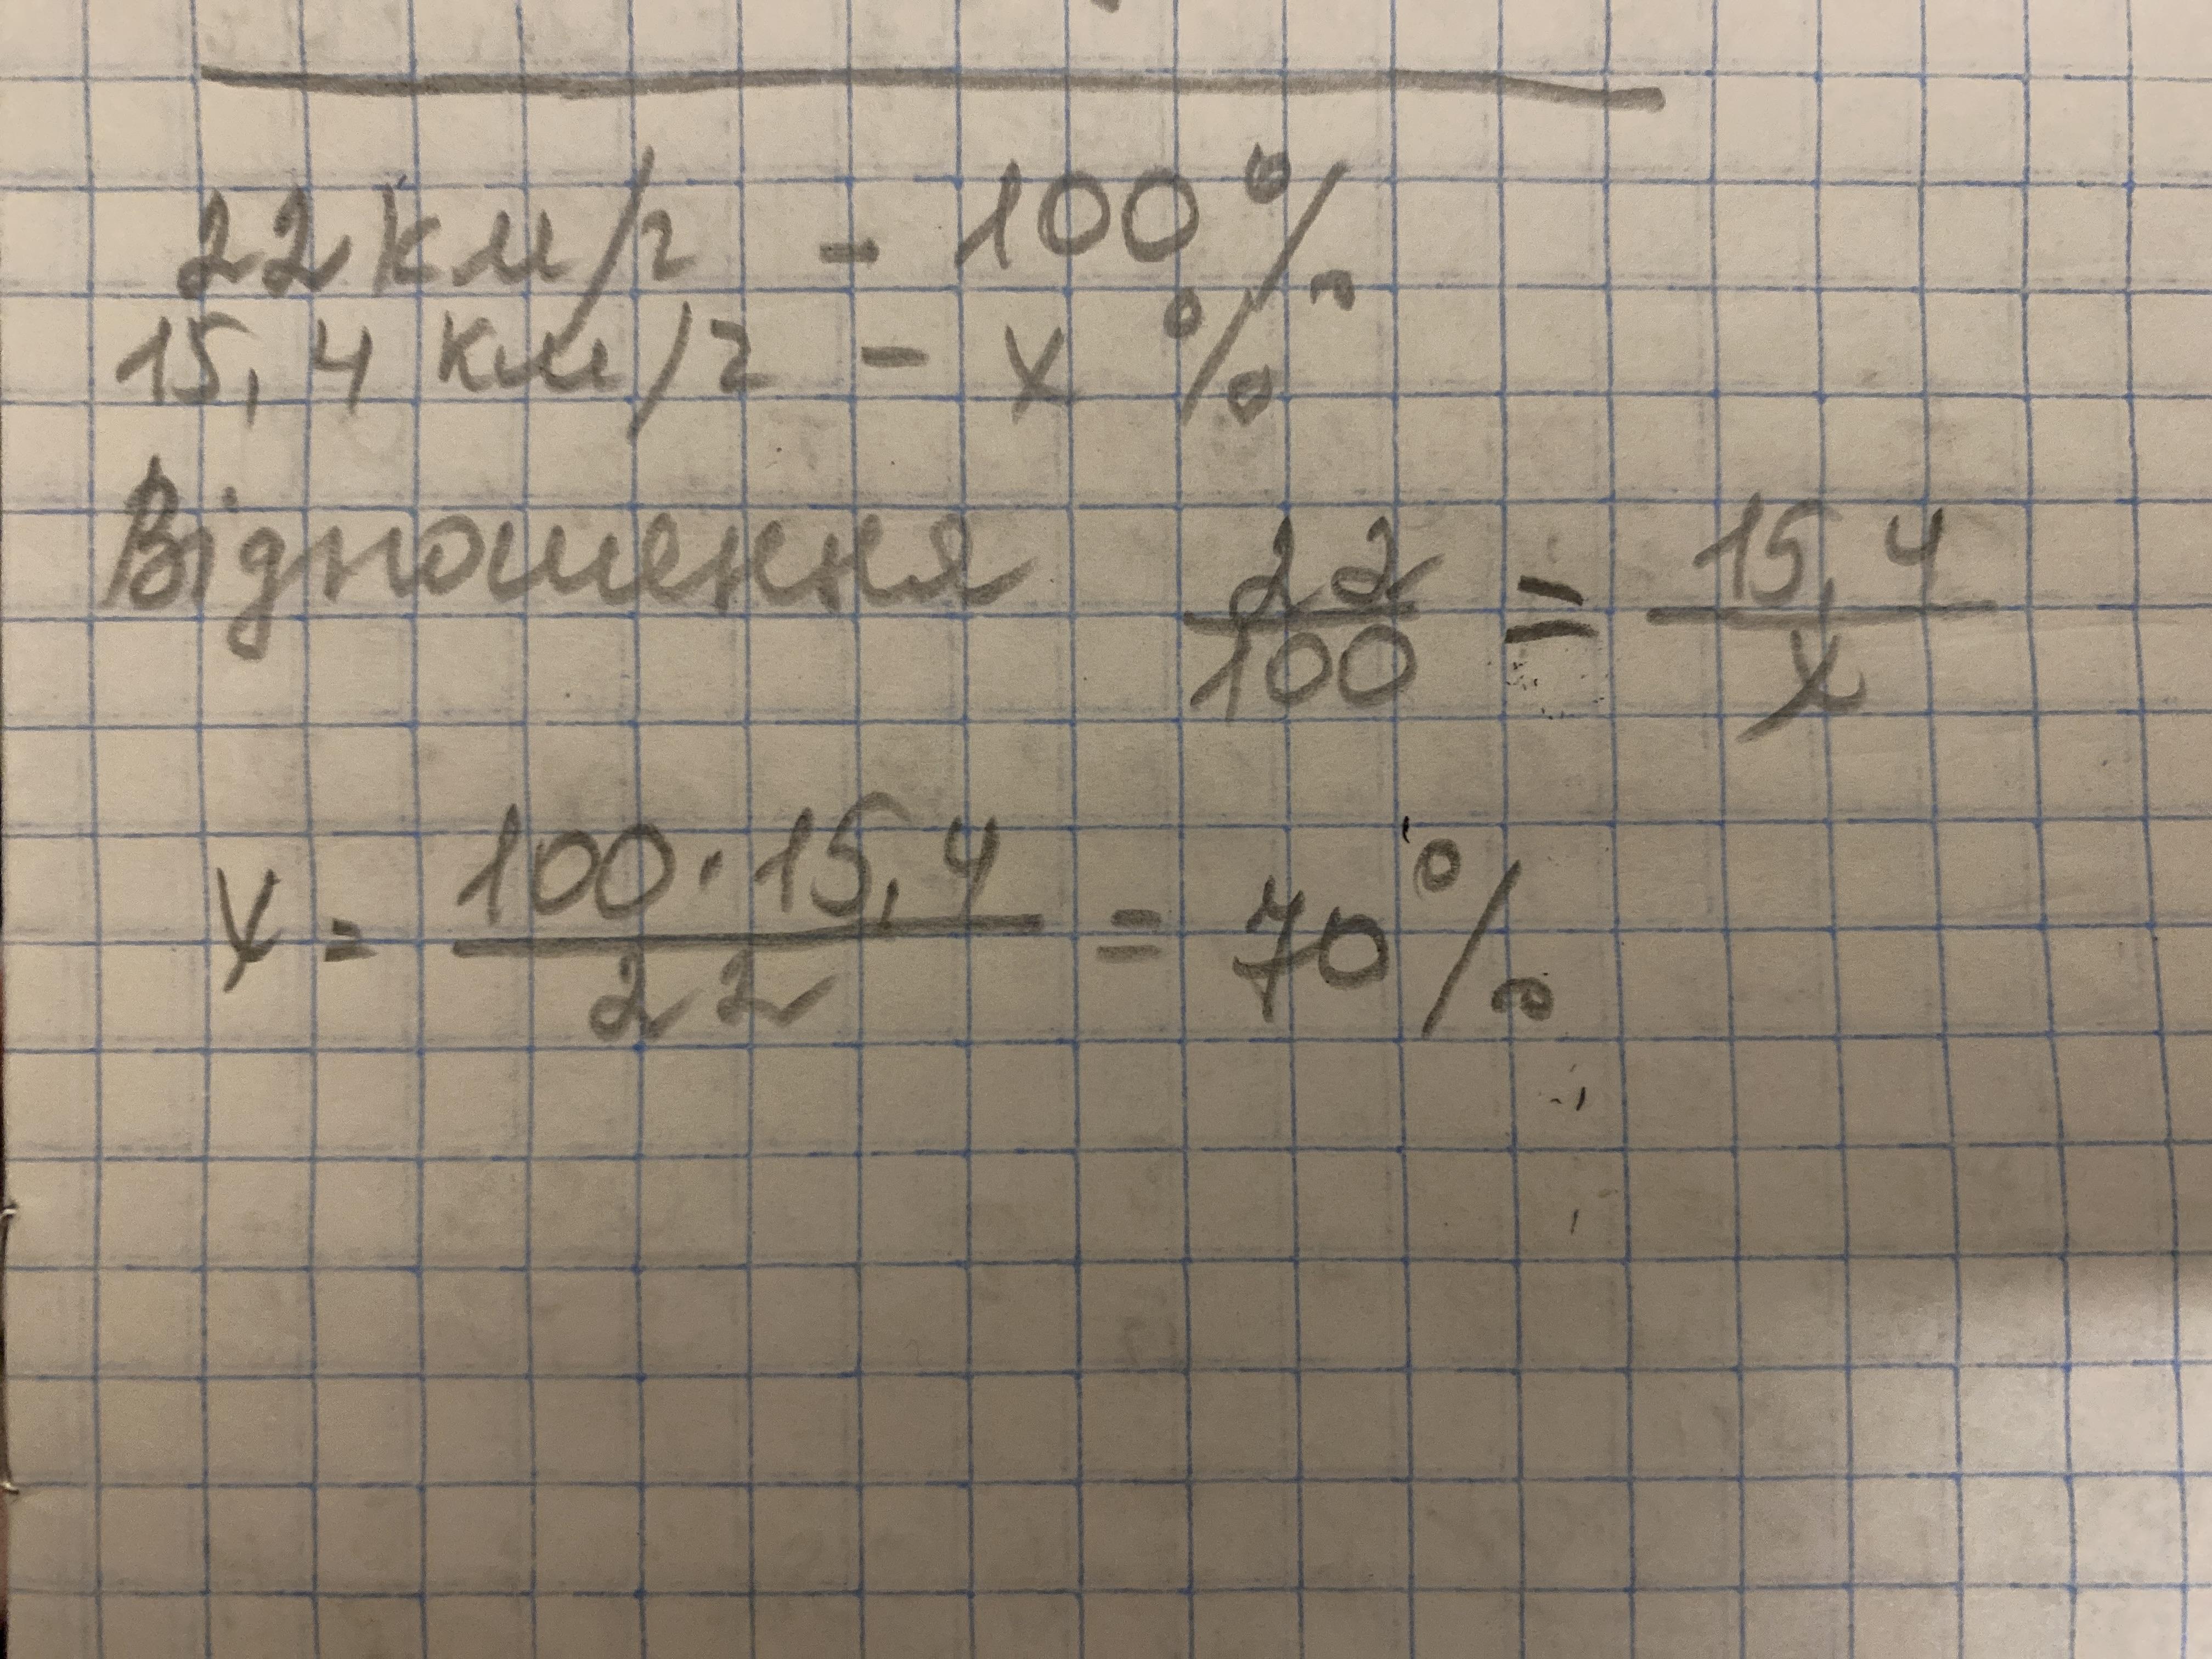 22 км/г - 100%
15,4 км/г - x %
Відношення 22/100 = 15,4/x
x = 100·15,4/22 = 70%